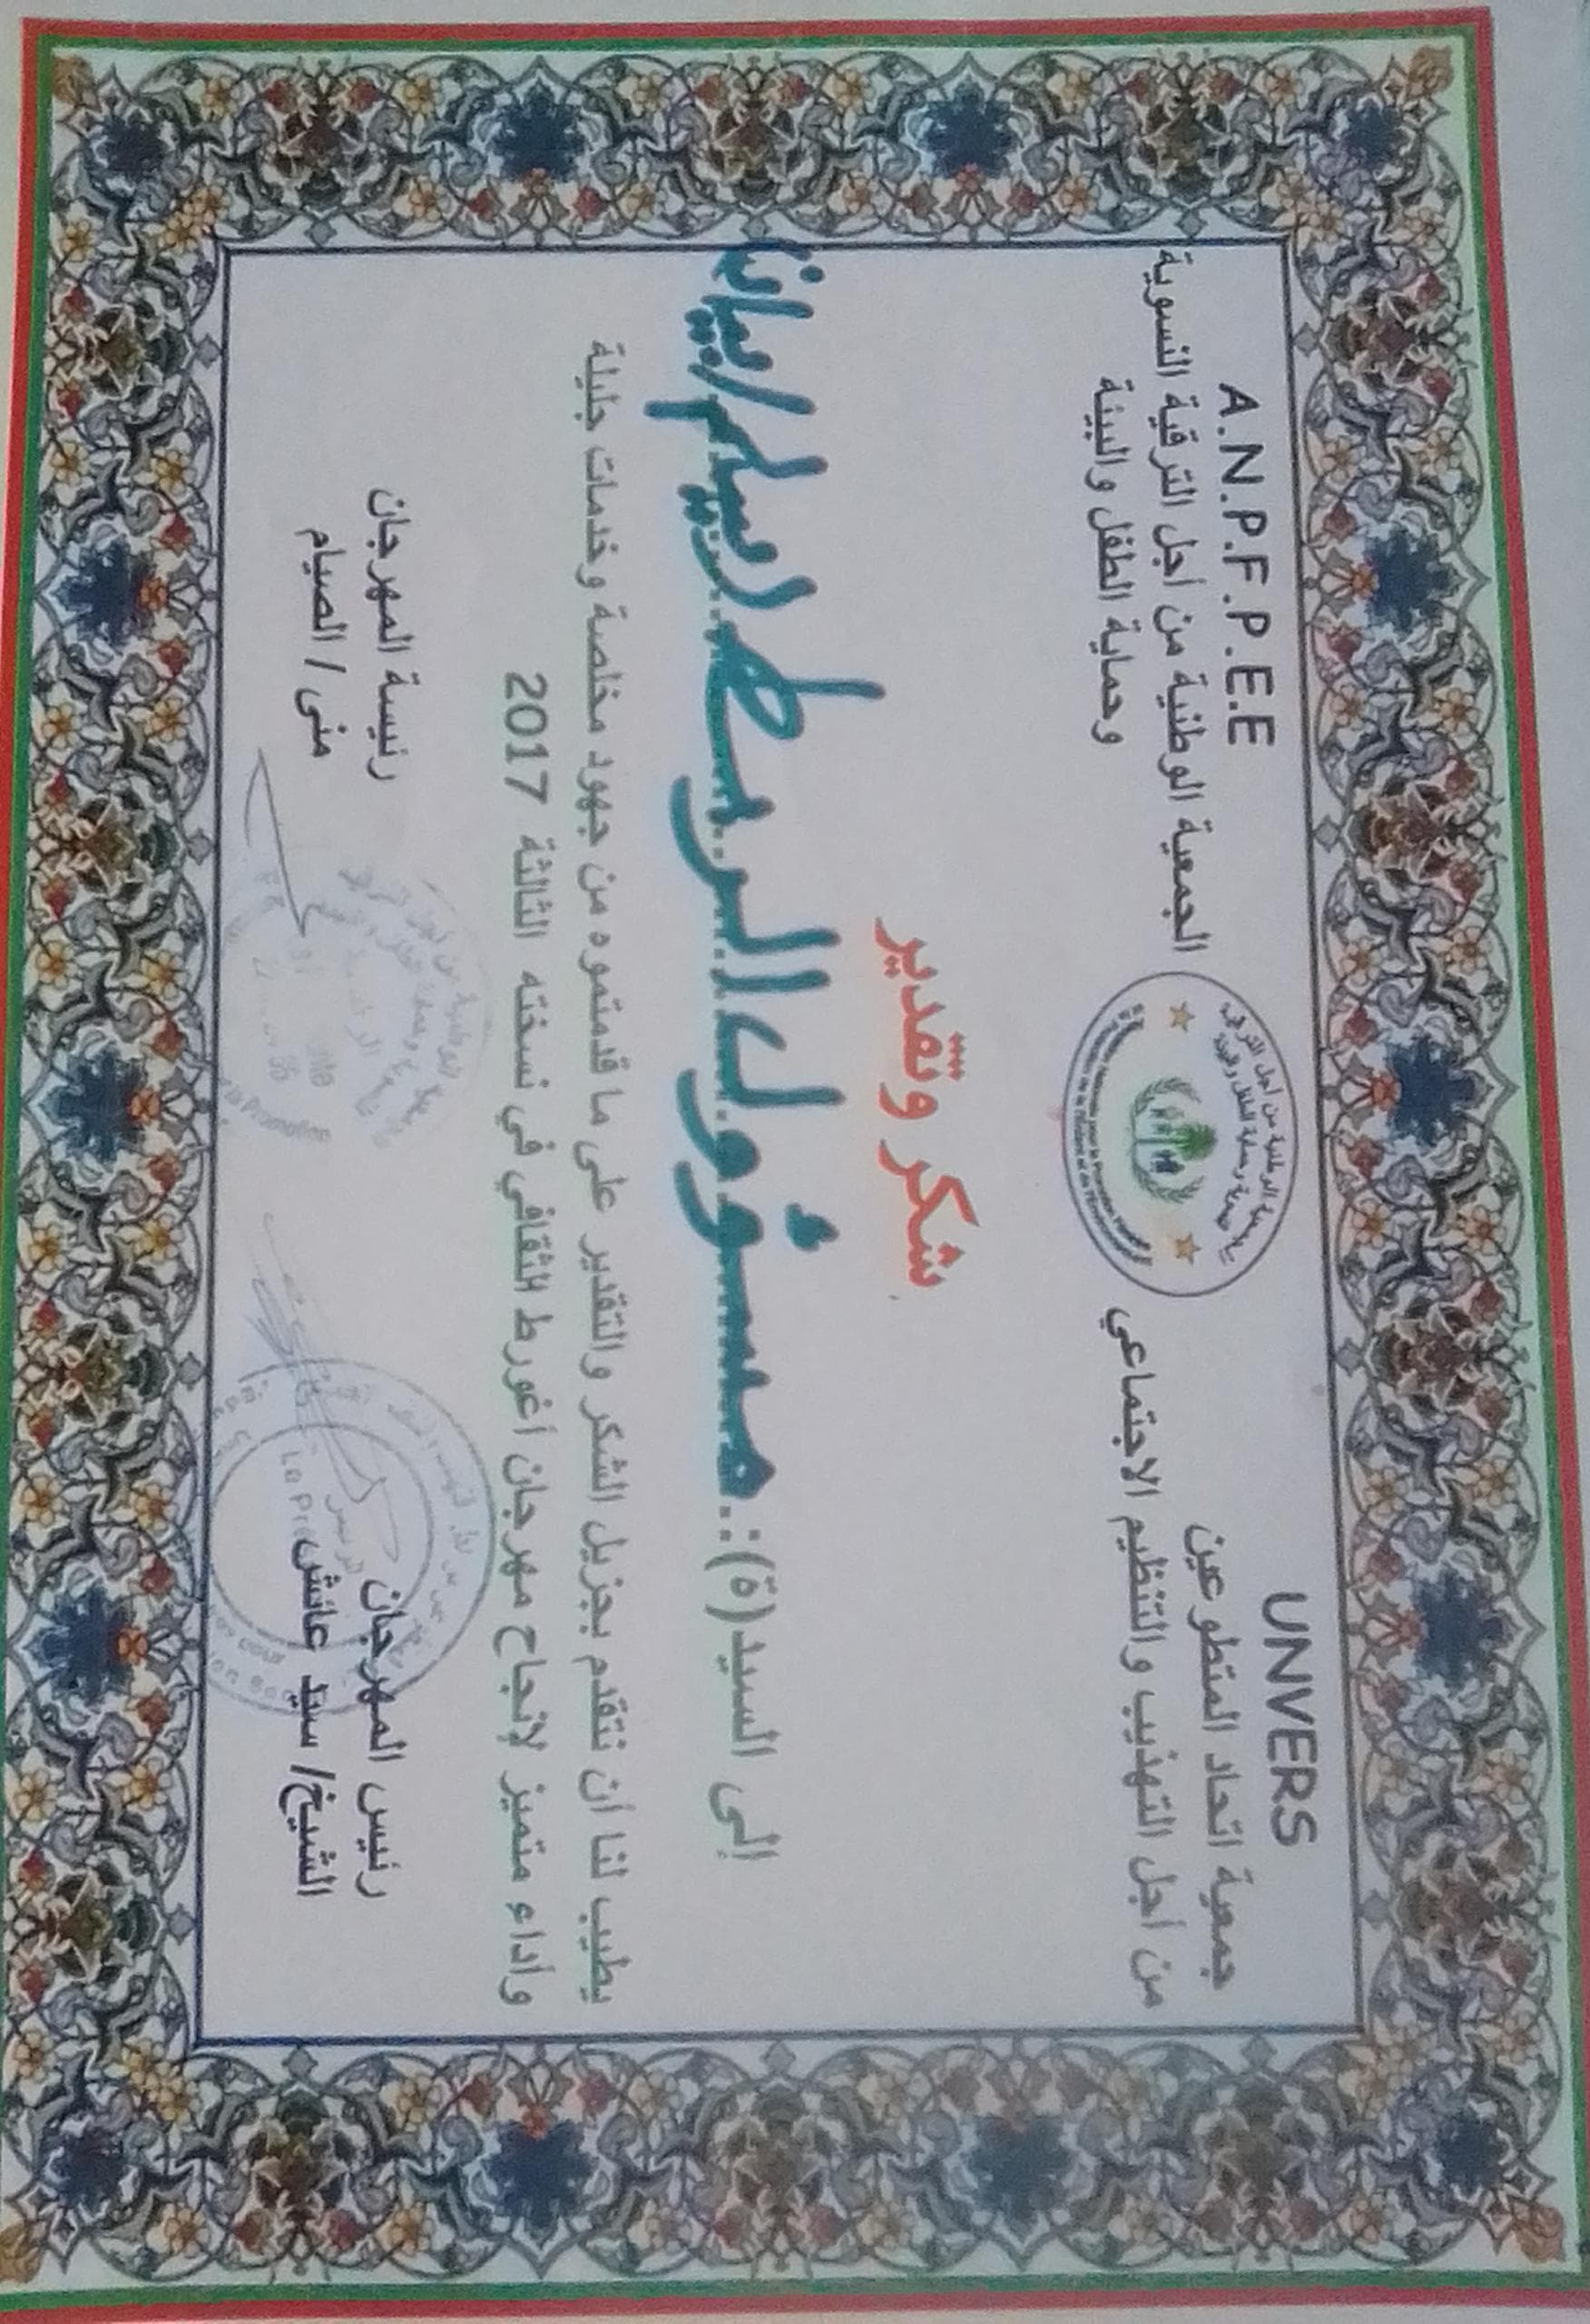 UNVERS
جمعية اتحاد المتطوعين
من أجل التهذيب والتنظيم الاجتماعي
A.N.P.F.P.E.E
الجمعية الوطنية من أجل الترقية النسوية
وحماية الطفل والبيئة
شكر وتقدير
إلى السيد(ة):. مسؤول الربط
يطيب لنا أن نتقدم بجزيل الشكر والتقدير على ما قدمتموه من جهود مخلصة وخدمات جليلة
وأداء متميز لإنجاح مهرجان أغورط الثقافي في نسخته الثالثة 2017
رئيس المهرجان
الشيخ/ سيد عائش
رئيسة المهرجان
منى / الصيام